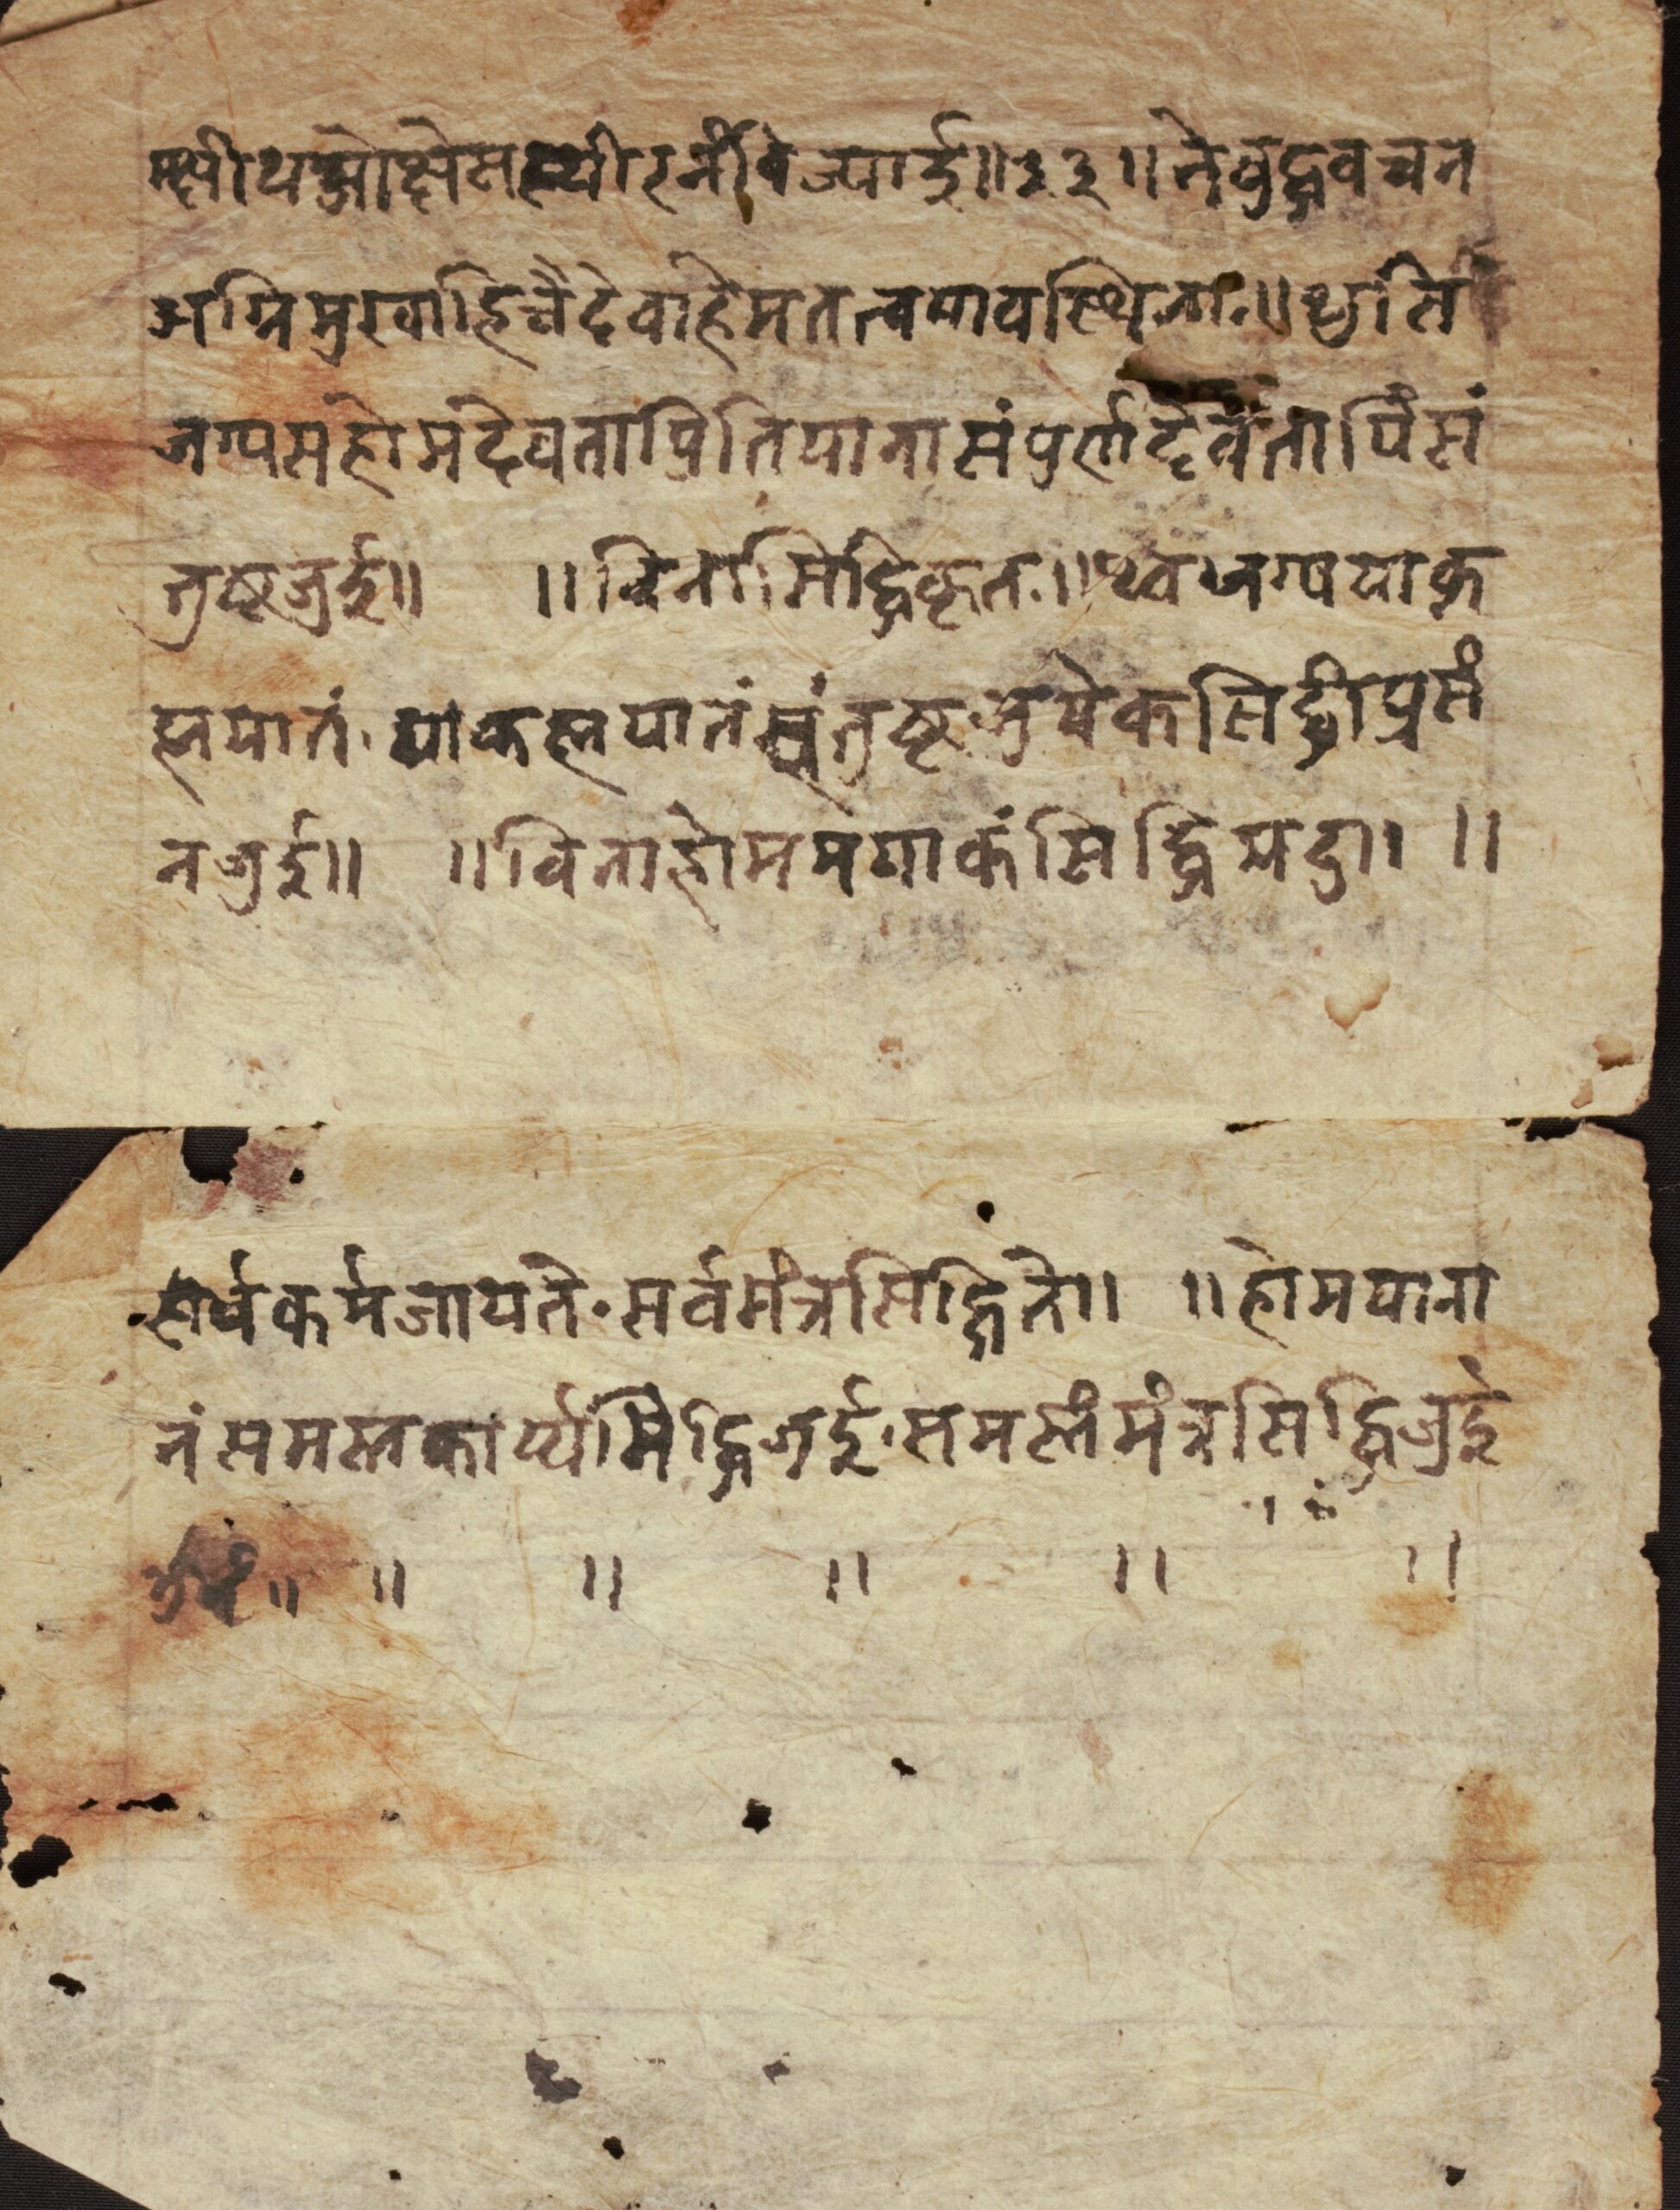 क्षीथमोक्षेसत्थीरनीवेज्याई॥३३॥नेबुद्धवचन
अग्निमुखाहिवैदेवाहेमतत्वयावस्थिताः॥थुति
जग्यसहोमदेवताप्रितियानासंपुर्तादेवतापिंसं
तुष्टजुई॥ ॥विनासिद्धिकृतः॥थ्वजग्पयाक
ह्मयातं॰याकह्मयातंसंतुष्टजुयेकसिद्धीप्रसं
नजुई॥ ॥विनाहोममगाकंसिद्धिसदा॥ ॥
सर्वकर्मजायते॰सर्वमंत्रसिद्धिते॥ ॥होमयाना
नंसमस्तकार्य्यसिद्धिजुई॰समस्तंमंत्रसिद्धिजुई
॥ ॥ ॥ ॥ ॥ ॥